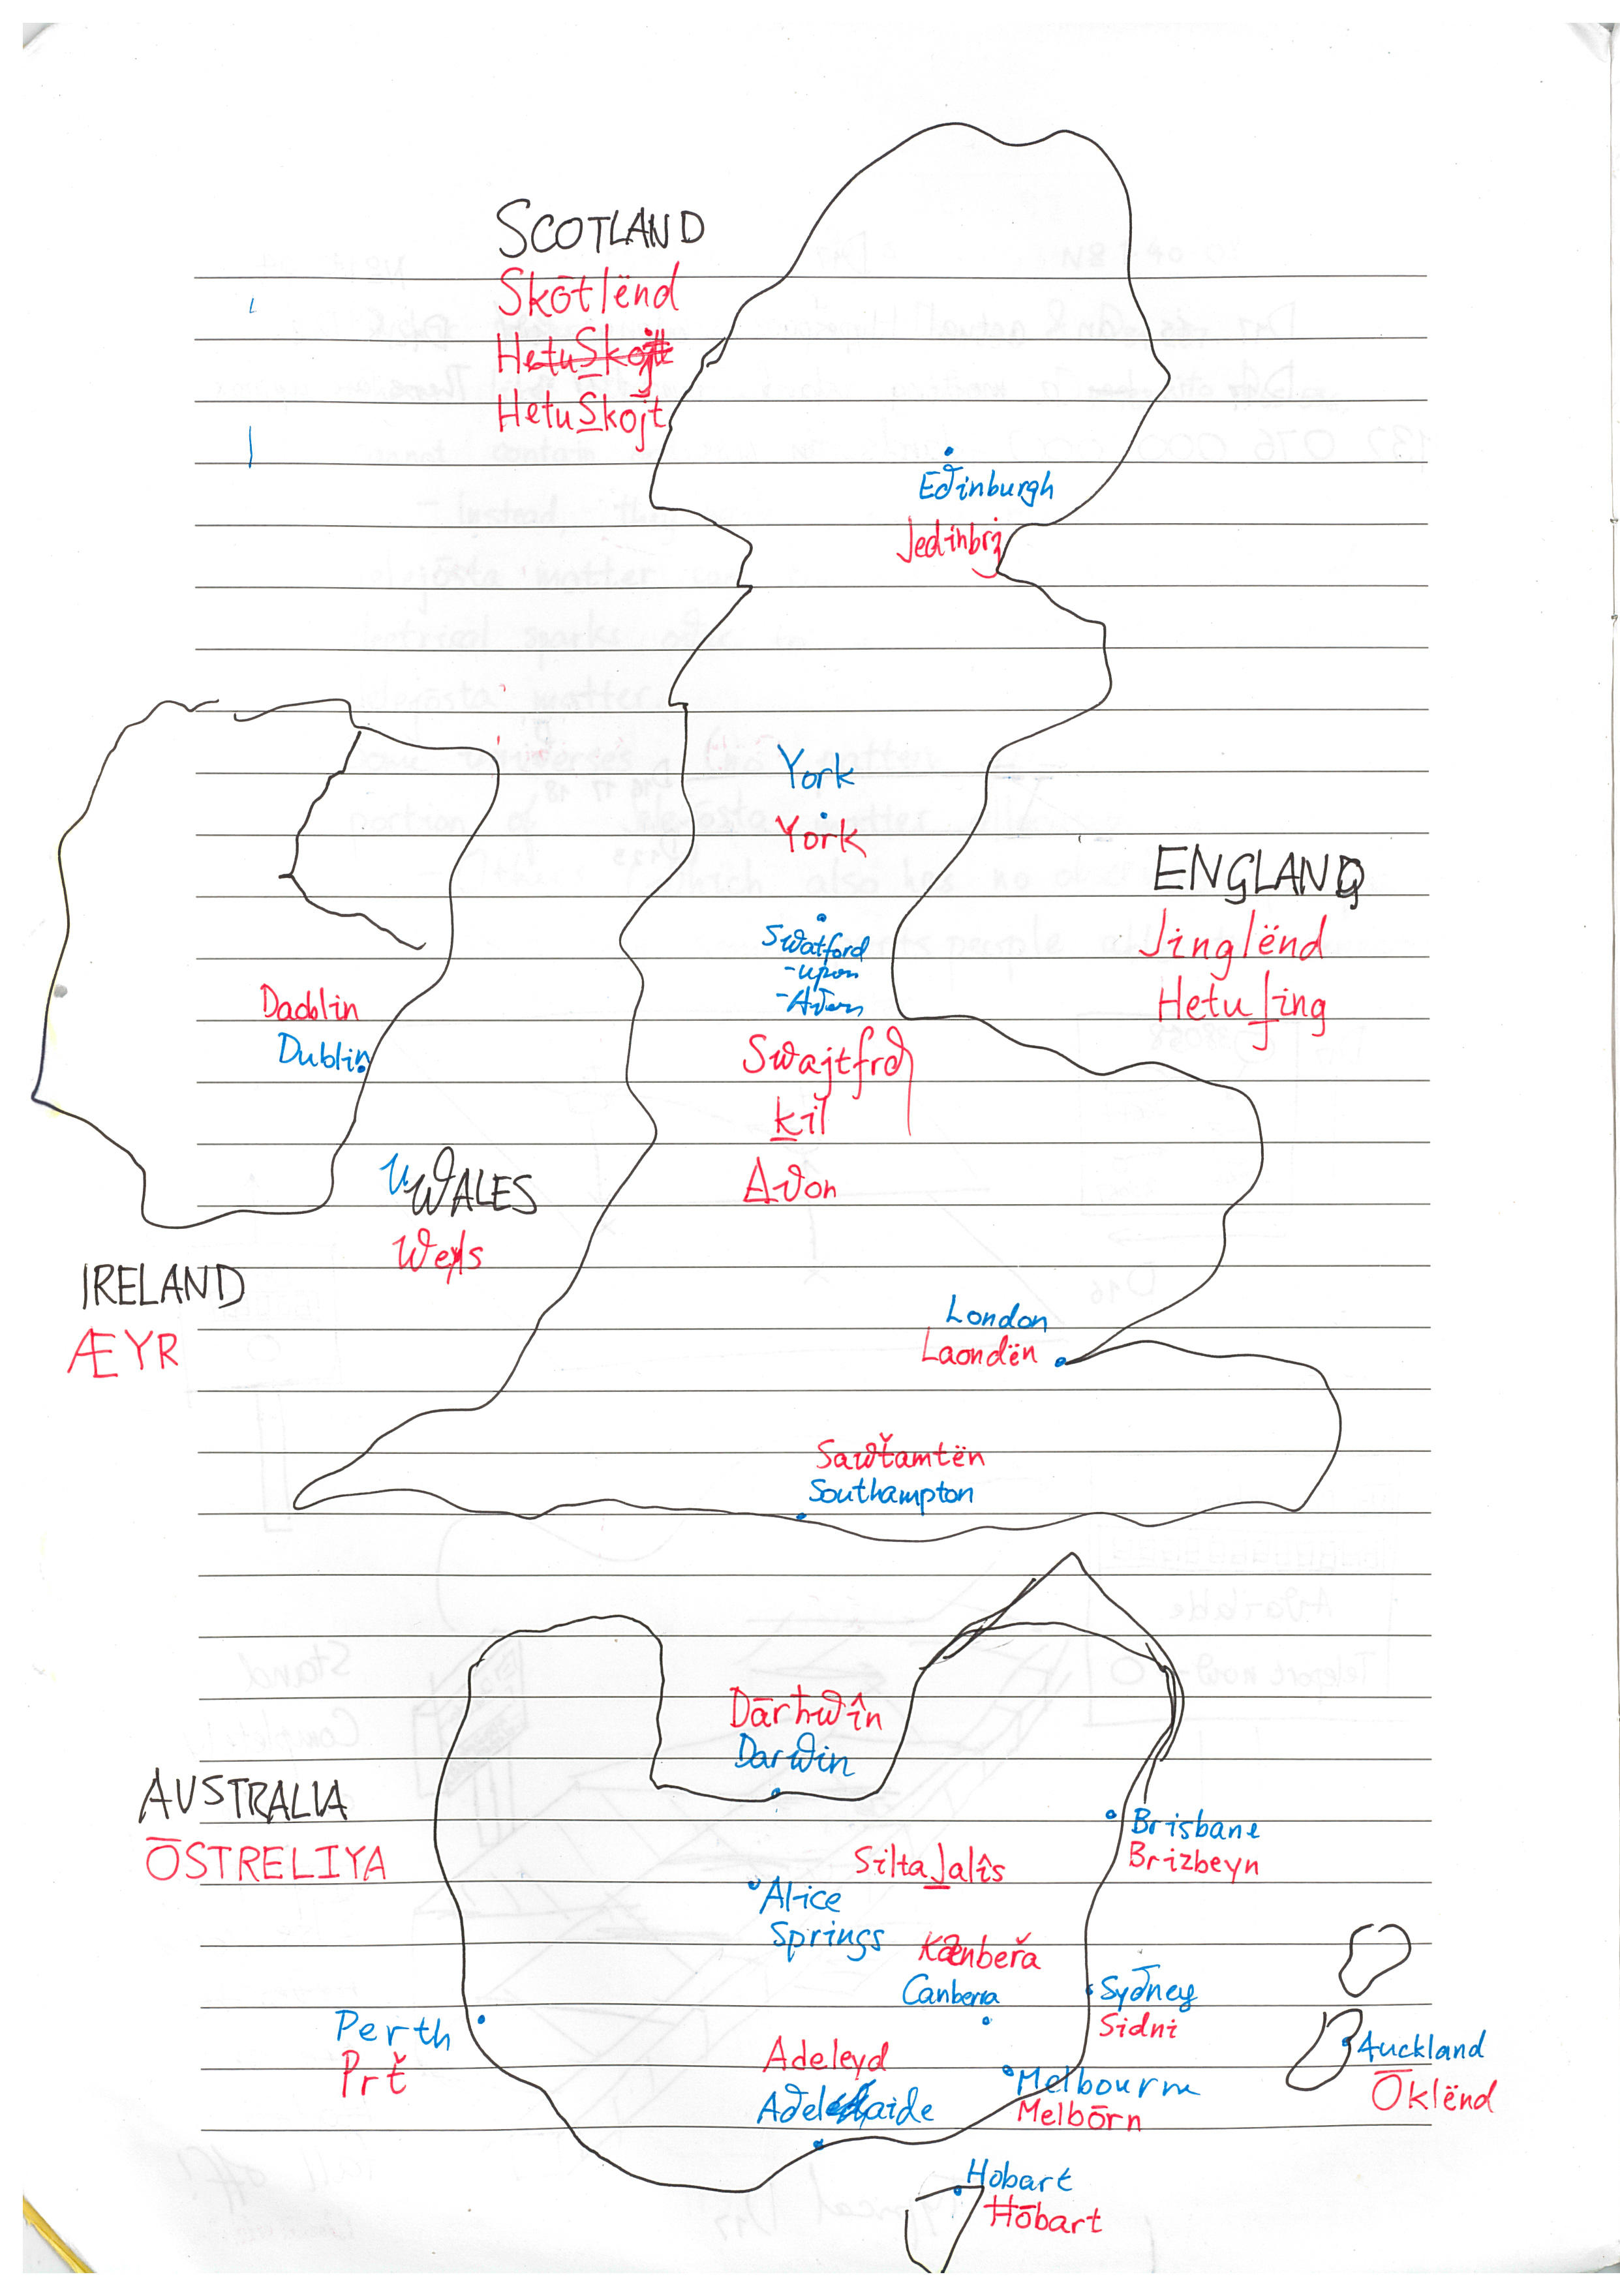 SCOTLAND
Skōtlënd
HetuSkōjt
Edinburgh
Jedinbrj
York
York
ENGLAND
Jinglënd
HetuJing
Swatford
-upon
-Avon
Swajtfrd
kil
Avon
Dadblin
Dublin
WALES
Weyls
IRELAND
ÆYR
London
Laondën
Sawťamtën
Southampton
Dārhwîn
Darwin
AUSTRALIA
ŌSTRELIYA
Brisbane
Brizbeyn
SiltaJalîs
Alice
Springs
Kænbeřa
Canberra
Sydney
Sidni
Perth
Prť
Adeleyd
Adelaide
Melbourne
Melbōrn
Auckland
Ōklënd
Hobart
Hōbart